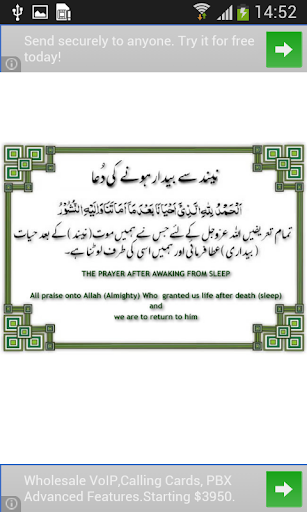 14:52
Send securely to anyone. Try it for free
today!
نیند سے بیدار ہونے کی دُعا
اَلْحَمْدُ لِلّٰهِ الَّذِیْ اَحْیَانَا بَعْدَ مَا اَمَاتَنَا وَاِلَیْهِ النُّشُوْرُ
تمام تعریفیں اللہ عزوجل کے لئے جس نے ہمیں موت ( نیند ) کے بعد حیات
( بیداری ) عطا فرمائی اور ہمیں اسی کی طرف لوٹنا ہے۔
THE PRAYER AFTER AWAKING FROM SLEEP
All praise onto Allah (Almighty) Who granted us life after death (sleep)
and
we are to return to him
Wholesale VoIP,Calling Cards, PBX
Advanced Features.Starting $3950.